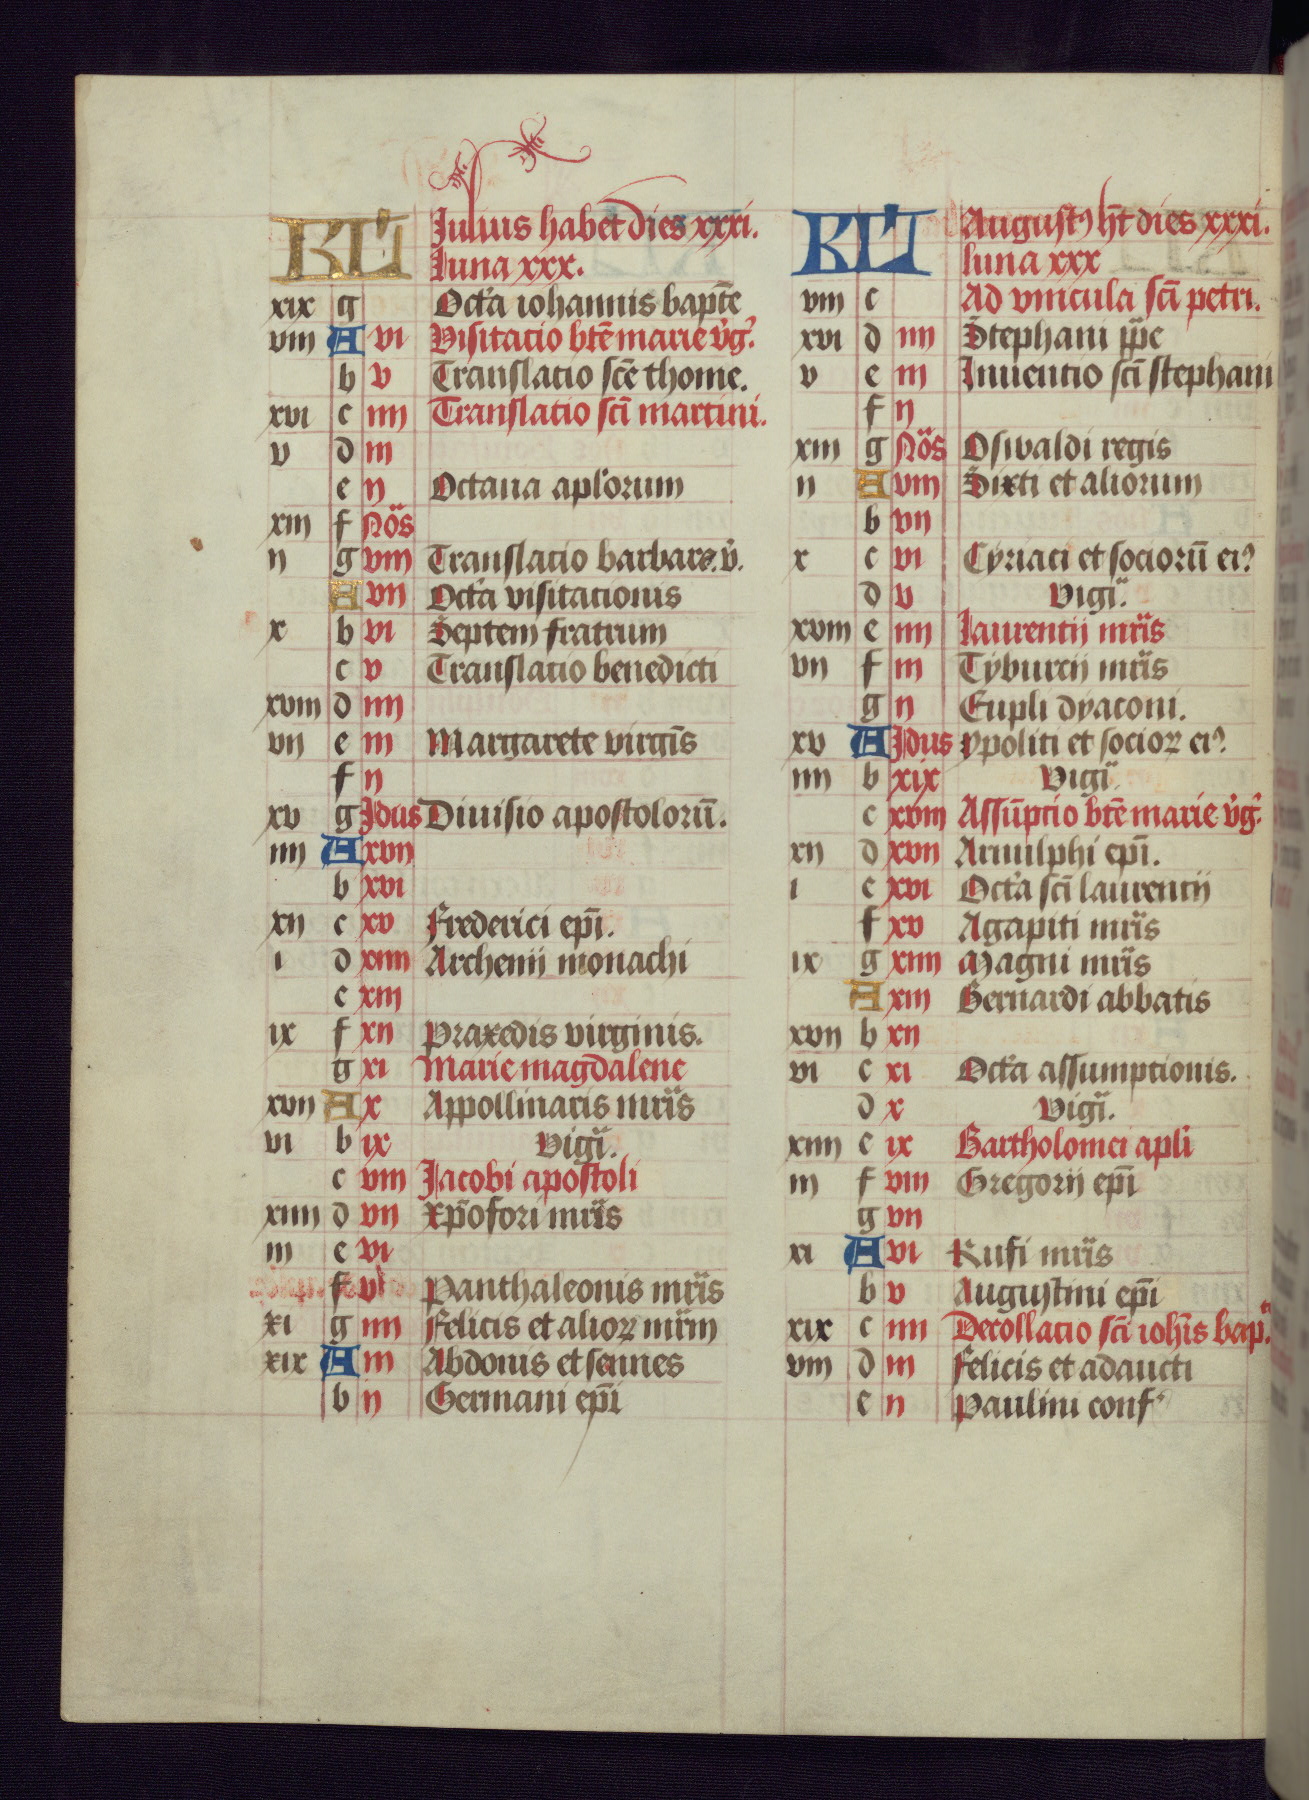 KL Julius habet dies xxxi.
luna xxx.
xix g Octa iohannis bapte
viii A vi Visitacio bte marie vg.
b v Translacio sce thome.
xvi c iiii Translacio sci martini.
v d iii
e ii Octaua aplorum
xiii f Nōs
ii g viii Translacio barbare. v.
A vii Octa visitacionis
x b vi Septem fratrum
c v Translacio benedicti
xviii d iiii
vii e iii Margarete virgis
f ii
xv g Idus Diuisio apostolorū.
iiii A xvii
b xvi
xii c xv Frederici epi.
i d xiiii Archenii monachi
e xiii
ix f xii Praxedis virginis.
g xi Marie magdalene
xvii A x Appollinaris mris
vi b ix Vigi.
c viii Jacobi apostoli
xiiii d vii xpofori mris
iii e vi
f v Panthaleonis mris
xi g iiii Felicis et alioꝝ mrm
xix A iii Abdonis et sennes
b ii Germani epi
KL Augustꝰ ht dies xxxi.
luna xxx
viii c Ad vincula sci petri.
xvi d iiii Stephani ppe
v e iii Inuentio sci stephani
f ii
xiii g Nōs Oswaldi regis
ii A viii Sixti et aliorum
b vii
x c vi Cyriaci et sociorū eiꝰ
d v Vigi.
xviii e iiii Laurentii mris
vii f iii Tyburcii mris
g ii Eupli dyaconi.
xv A Idus Ypoliti et socioꝝ eiꝰ.
iiii b xix Vigi.
c xviii Assūptio bte marie vg.
xii d xvii Arnulphi epi.
i e xvi Octa sci laurentii
f xv Agapiti mris
ix g xiiii Magni mris
A xiii Bernardi abbatis
xvii b xii
vi c xi Octa assumptionis.
d x Vigi.
xiiii e ix Bartholomei apli
iii f viii Gregorii epi
g vii
xi A vi Rufi mris
b v Augustini epi
xix c iiii Decollacio sci iohis bap.
viii d iii Felicis et adaucti
e ii Paulini conf